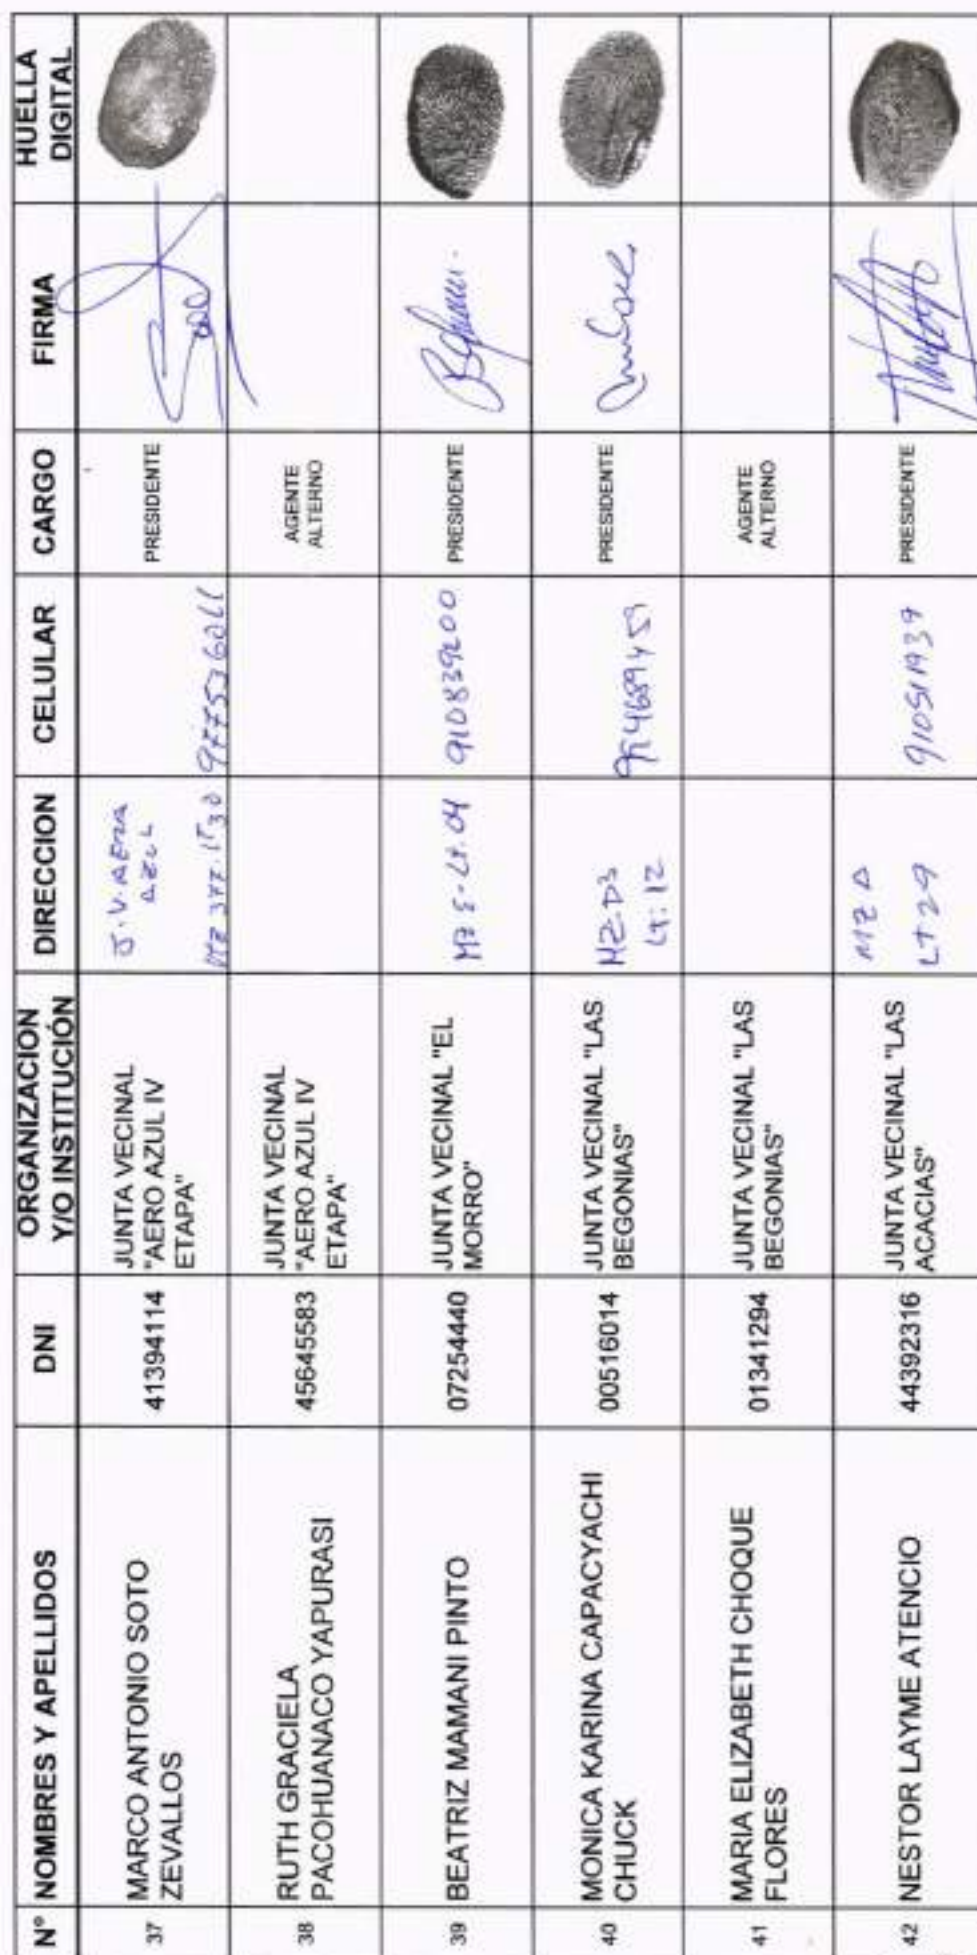 N° NOMBRES Y APELLIDOS DNI ORGANIZACION Y/O INSTITUCIÓN DIRECCION CELULAR CARGO FIRMA HUELLA DIGITAL
37 MARCO ANTONIO SOTO
ZEVALLOS
41394114
JUNTA VECINAL
"AERO AZUL IV
ETAPA"
J.V. AERO
AZUL
MZ 377. LT 30
PRESIDENTE
38 RUTH GRACIELA
PACOHUANACO YAPURASI
45645583
JUNTA VECINAL
"AERO AZUL IV
ETAPA"
AGENTE
ALTERNO
39 BEATRIZ MAMANI PINTO
07254440
JUNTA VECINAL "EL
MORRO"
Lt. 04
910839200
PRESIDENTE
40 MONICA KARINA CAPACYACHI
CHUCK
00516014
JUNTA VECINAL "LAS
BEGONIAS"
MZ. D3
Lt: 12
PRESIDENTE
41 MARIA ELIZABETH CHOQUE
FLORES
01341294
JUNTA VECINAL "LAS
BEGONIAS"
AGENTE
ALTERNO
42 NESTOR LAYME ATENCIO
44392316
JUNTA VECINAL "LAS
ACACIAS"
MZ
LT 29
910511939
PRESIDENTE